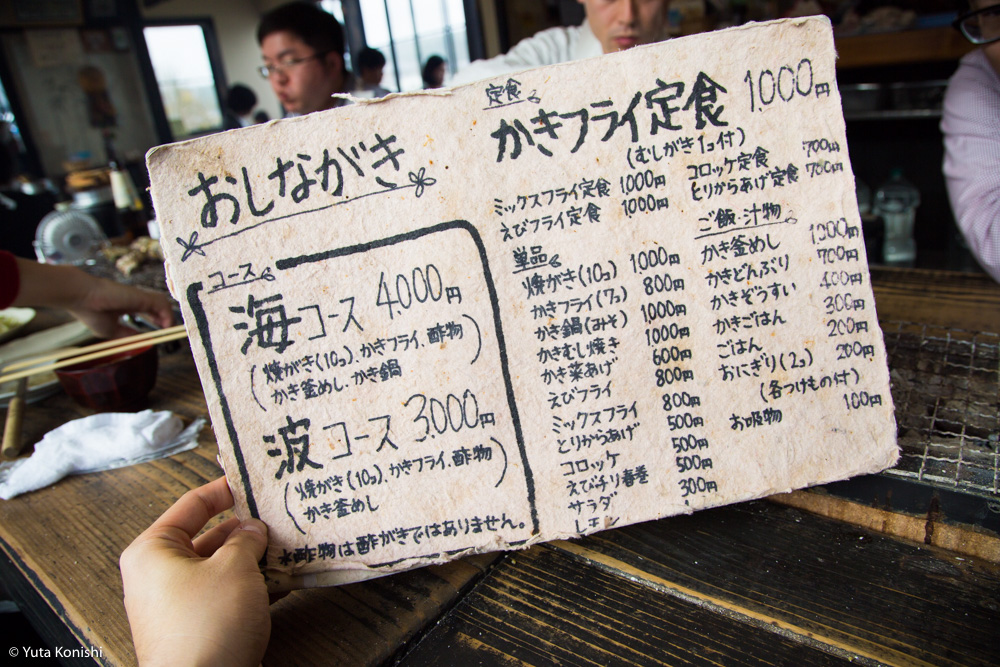 おしながき
コース
海コース 4,000円
(焼がき(10コ)、かきフライ、酢物
かき釜めし、かき鍋)
波コース 3,000円
(焼がき(10コ)、かきフライ、酢物
かき釜めし)
*酢物は酢がきではありません。
定食
かきフライ定食 1,000円
(むしがき1コ付)
ミックスフライ定食 1,000円
えびフライ定食 1,000円
コロッケ定食 700円
とりからあげ定食 700円
単品
焼がき(10コ) 1000円
かきフライ(7コ) 800円
かき鍋(みそ) 1,000円
かきむし焼き 1000円
かき葉あげ 600円
えびフライ 800円
ミックスフライ 800円
とりからあげ 500円
コロッケ 500円
えびチリ春巻 500円
サラダ 300円
レモン
ご飯・汁物
かき釜めし 1000円
かきどんぶり 700円
かきぞうすい 400円
かきごはん 300円
ごはん 200円
おにぎり(2コ) 200円
(各つけもの付)
お吸物 100円
© Yuta Konishi